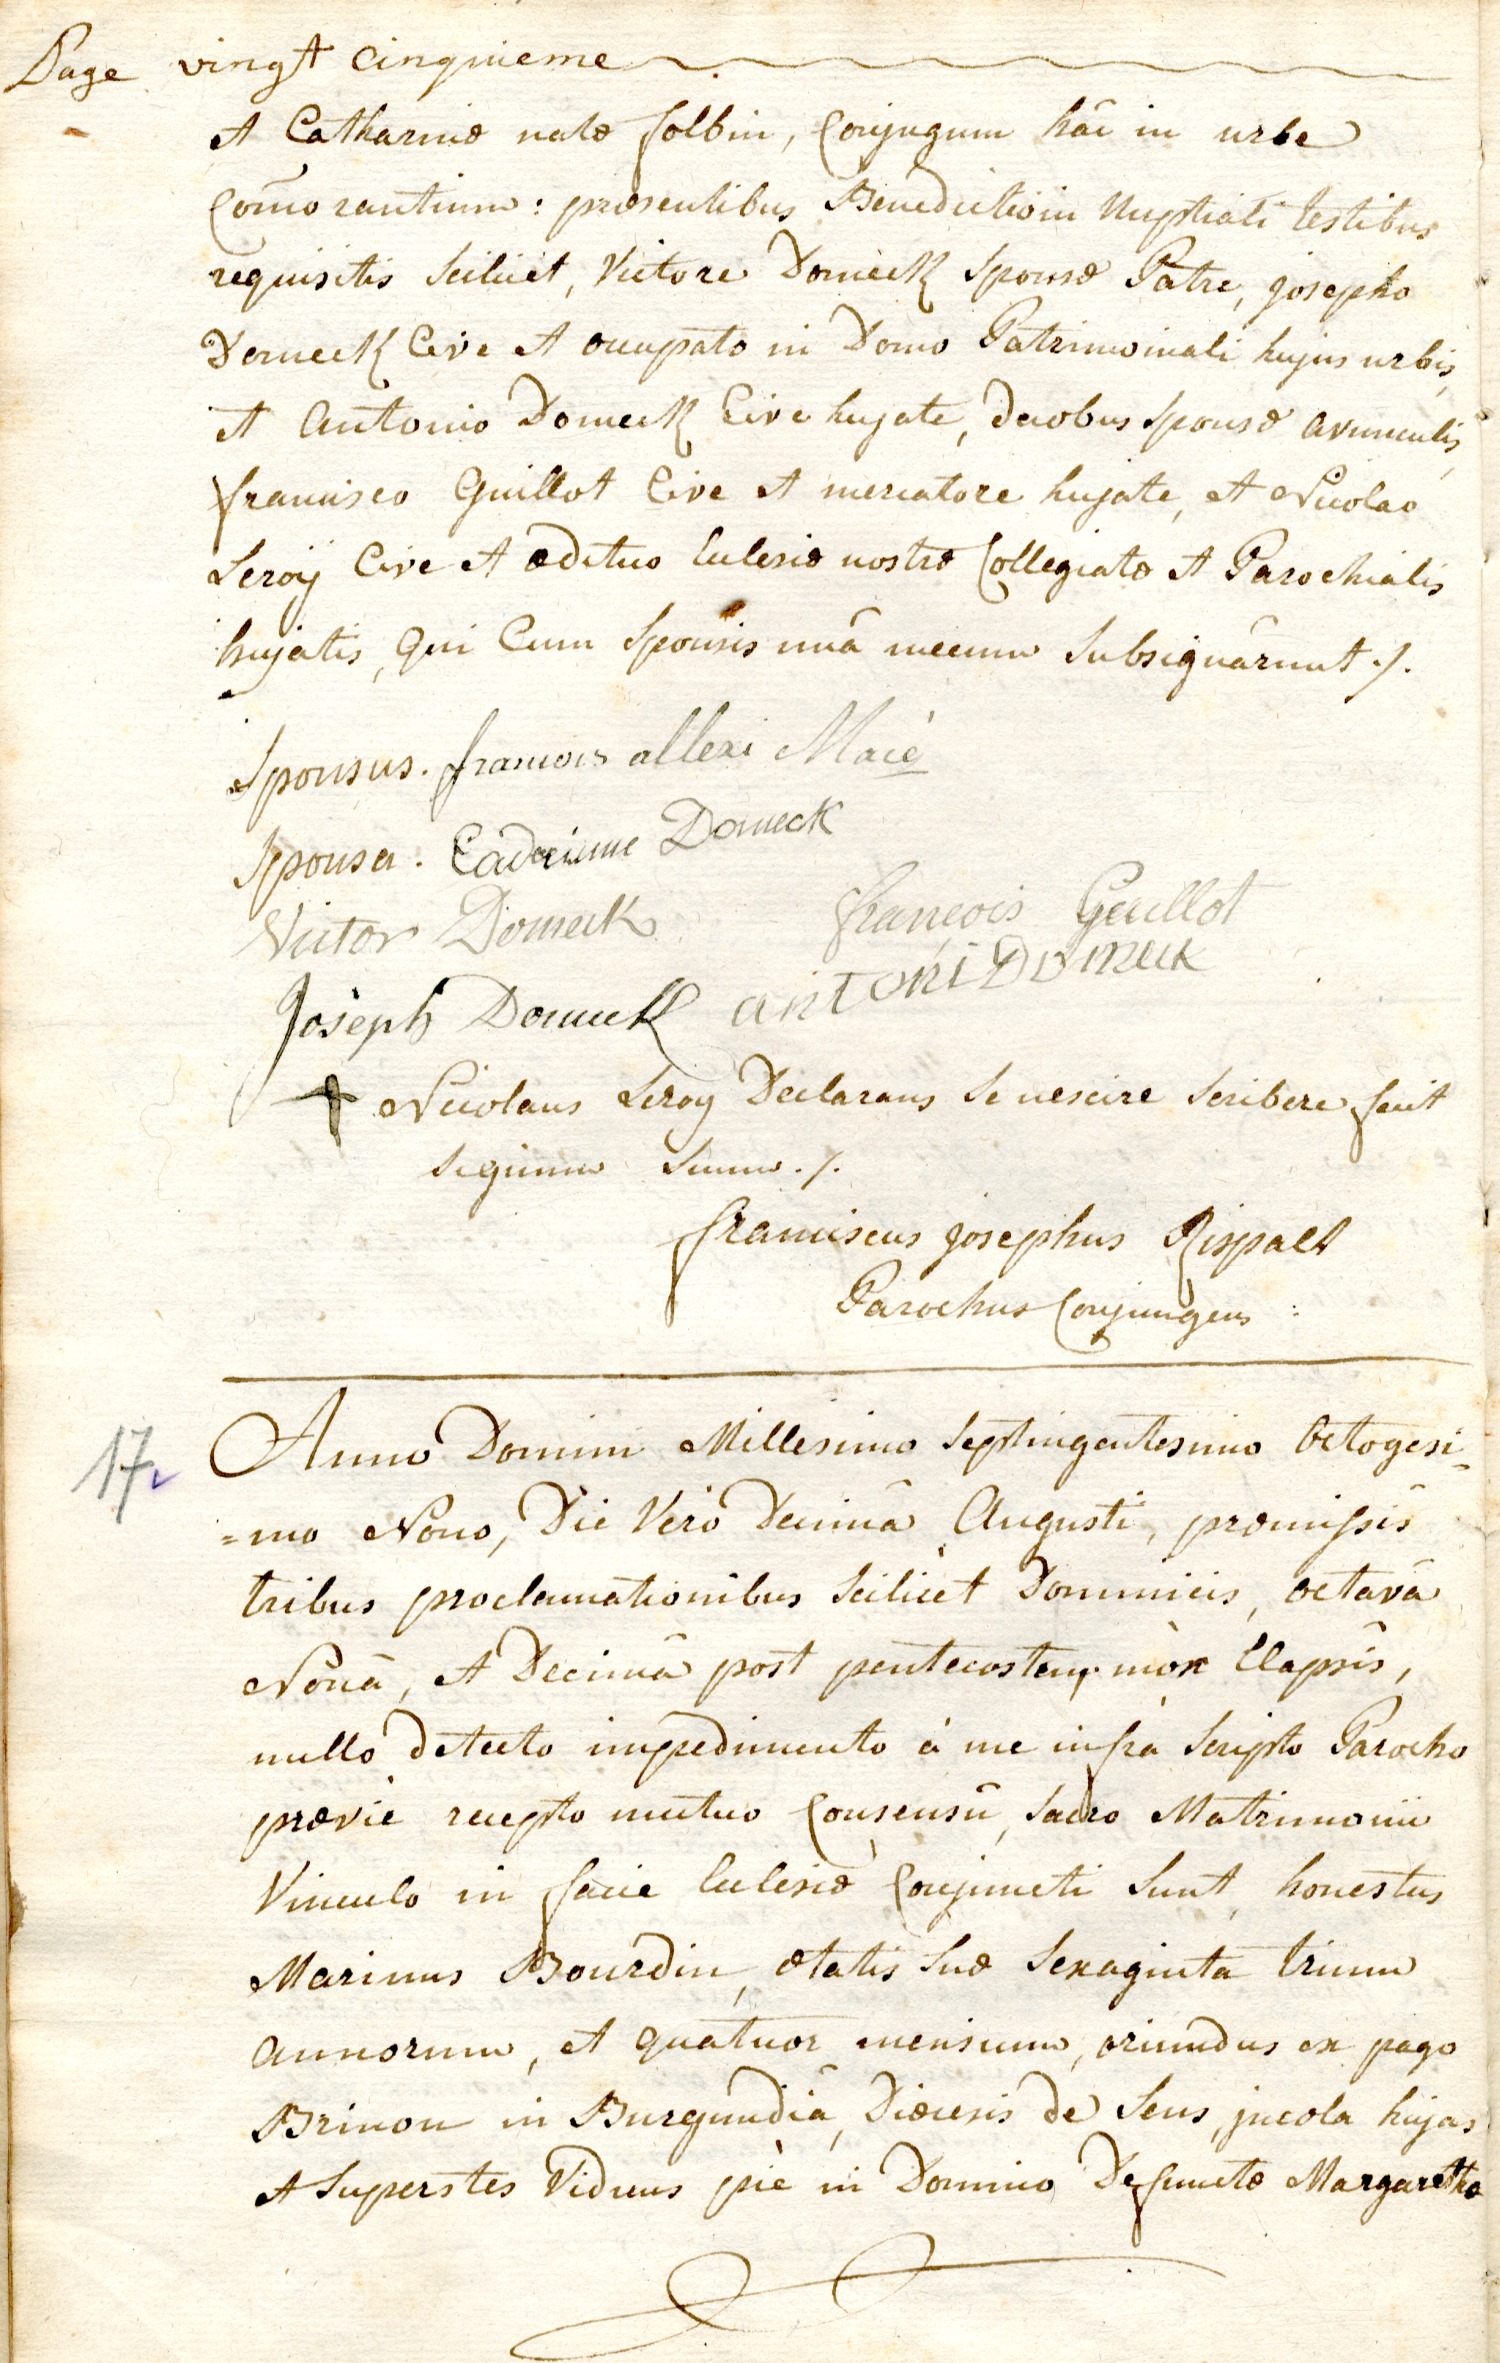 Page vingt cinquieme
et Catharinæ natæ folbin, Conjugum hâc in urbe
Com̄orantium: præsentibus Benedictioni Nuptiali testibus
requisitis scilicet, Victore Domeck sponsæ Patre, josepho
Domeck Cive et occupato in Domo Patrimoniali hujus urbis,
et Antonio Domeck Cive hujate, duobus sponsæ avunculis,
francisco Guillot Cive et mercatore hujate, et Nicolao
Leroÿ Cive et ædituo Ecclesiæ nostræ Collegiatæ et Parochialis
hujatis, qui Cum sponsis unâ mecum subsignârunt ./.
Sponsus. francois allexi Maié
Sponsa. Caderinne Domeck
Victor Domeck françois Guillot
Joseph Domeck antoni Domeck
+ Nicolaus Leroy Declarans se nescire scribere fecit
signum suum ./.
franciscus josephus Rispalt
Parochus Conjungens :
17.
Anno Domini Millesimo septingentesimo Octogesi=
=mo Nono, Die Verò Decimâ Augusti, præmissis
tribus proclamationibus scilicet Dominicis, octavâ
Nonâ, et Decimâ post pentecosten, mòx Elapsis,
nullo detecto impedimento à me infrà scripto Parocho
prævie recepto mutuo Consensû, sacro Matrimonii
Vinculo in facie Ecclesiæ Conjuncti sunt, honestus
Marinus Bourdin, ætatis suæ sexaginta trium
annorum, et quatuor mensium, oriundus ex pago
Brinon in Burgundiâ, Diœcesis de Sens, jncola hujas
et superstes Viduus piè in Domino Defunctæ Margarethæ